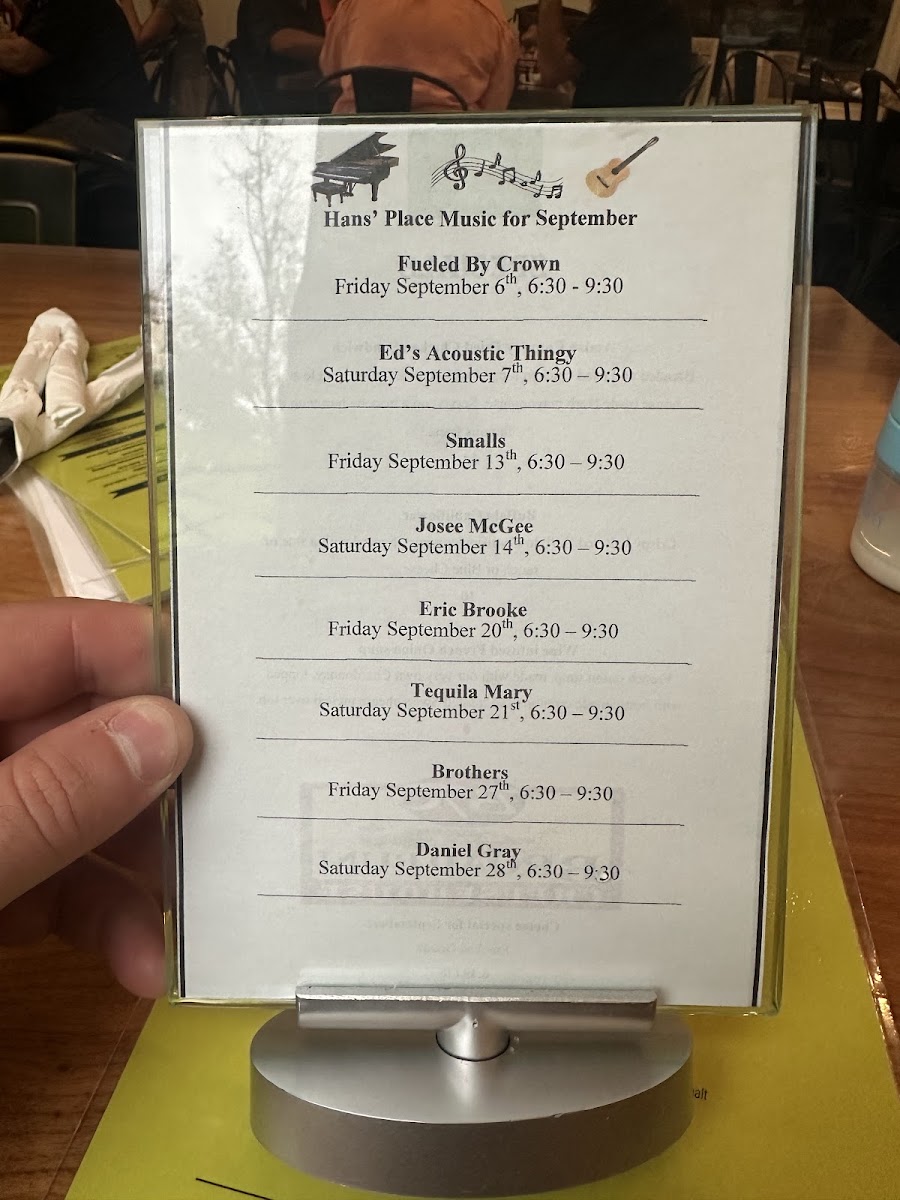 Hans' Place Music for September
Fueled By Crown
Friday September 6th, 6:30 - 9:30
Ed's Acoustic Thingy
Saturday September 7th, 6:30 – 9:30
Smalls
Friday September 13th, 6:30 – 9:30
Josee McGee
Saturday September 14th, 6:30 – 9:30
Eric Brooke
Friday September 20th, 6:30 – 9:30
Tequila Mary
Saturday September 21st, 6:30 – 9:30
Brothers
Friday September 27th, 6:30 – 9:30
Daniel Gray
Saturday September 28th, 6:30 – 9:30